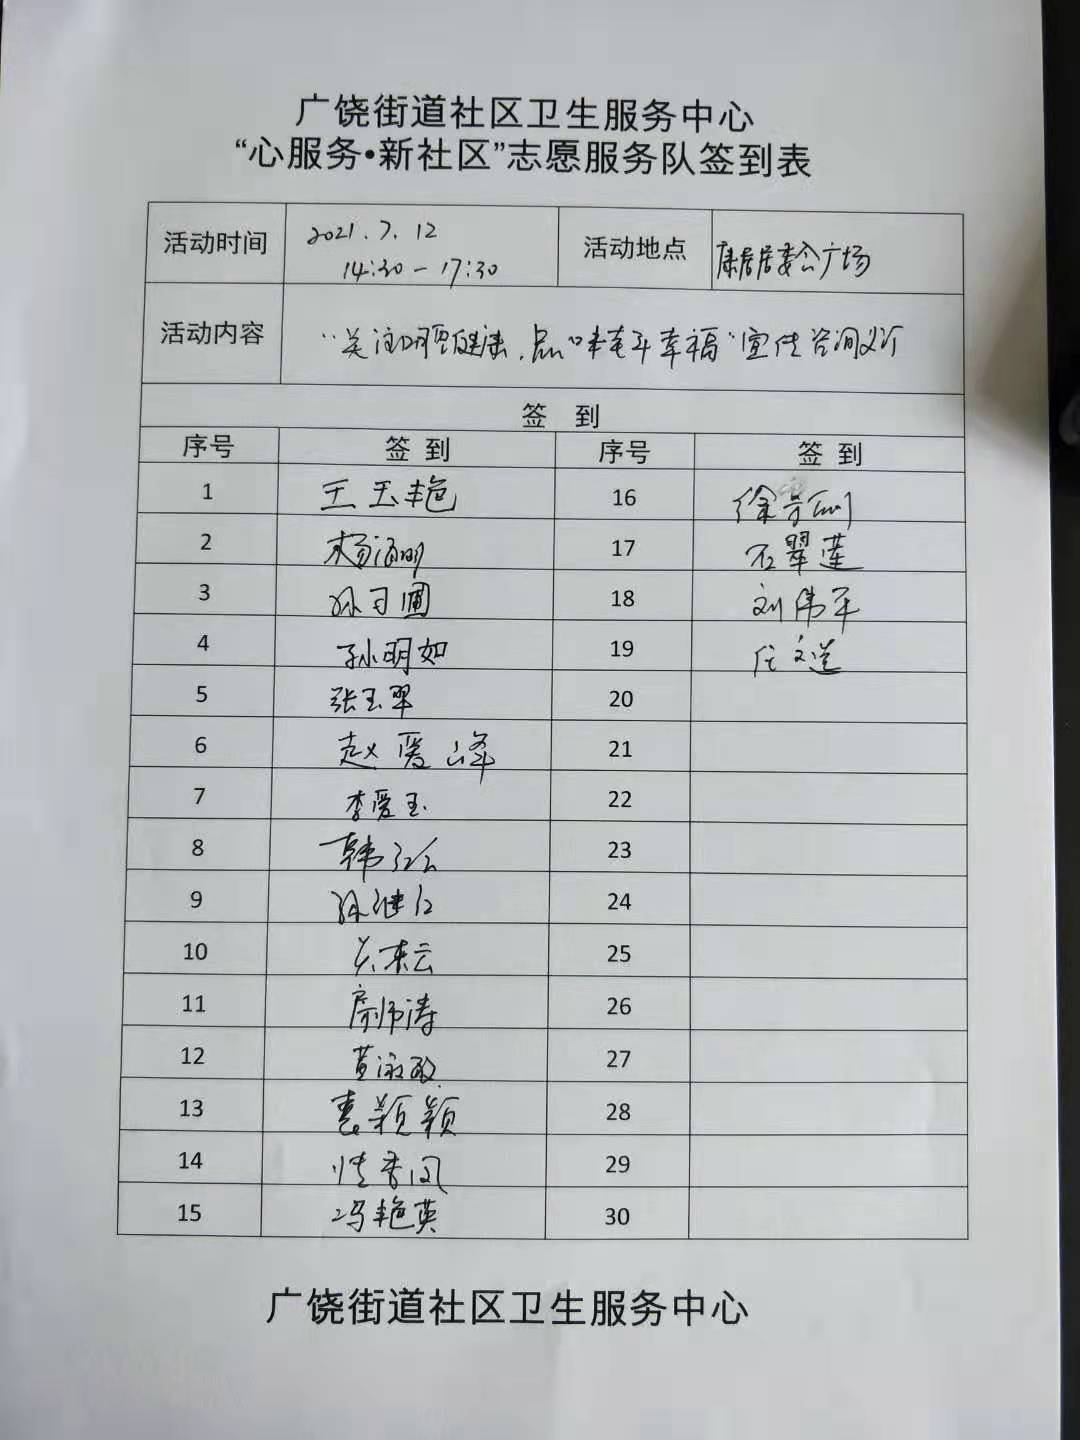 广饶街道社区卫生服务中心
“心服务•新社区”志愿服务队签到表
活动时间 2021.7.12 14:30-17:30 活动地点 康居居委会广场
活动内容 “关注口腔健康,品味老年幸福”宣传咨询义诊
签 到
序号 签到 序号 签到
1 王玉艳 16 徐
2 杨海明 17 石翠莲
3 孙 18 刘伟军
4 孙明如 19 任文莲
5 张玉翠 20
6 赵爱峰 21
7 李爱玉 22
8 韩 23
9 孙继红 24
10 云 25
11 房师涛 26
12 黄 27
13 袁颖颖 28
14 香凤 29
15 冯艳英 30
广饶街道社区卫生服务中心